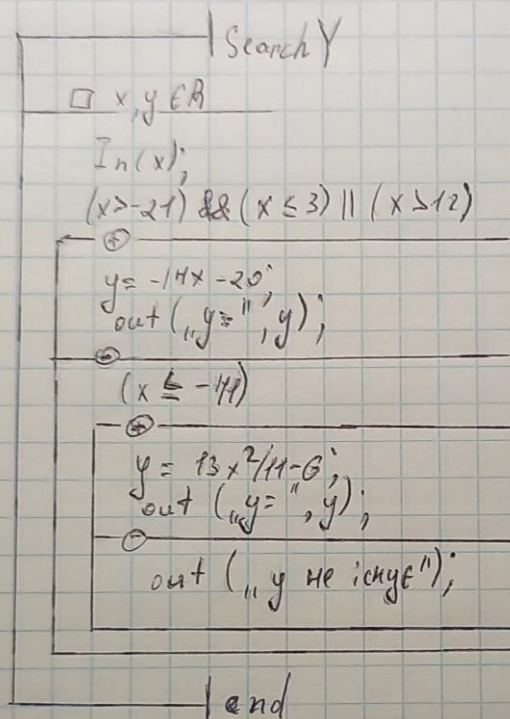 Search Y
□ x, y ∈ R
In(x);
(x>-21) && (x ≤ 3) || (x > 12)
⊕
y= -14x -20;
out („y=", y);
⊖
(x ≤ -41)
⊕
y = 13x²/11-6;
out („y=", y);
⊖
out („ y не існує");
end